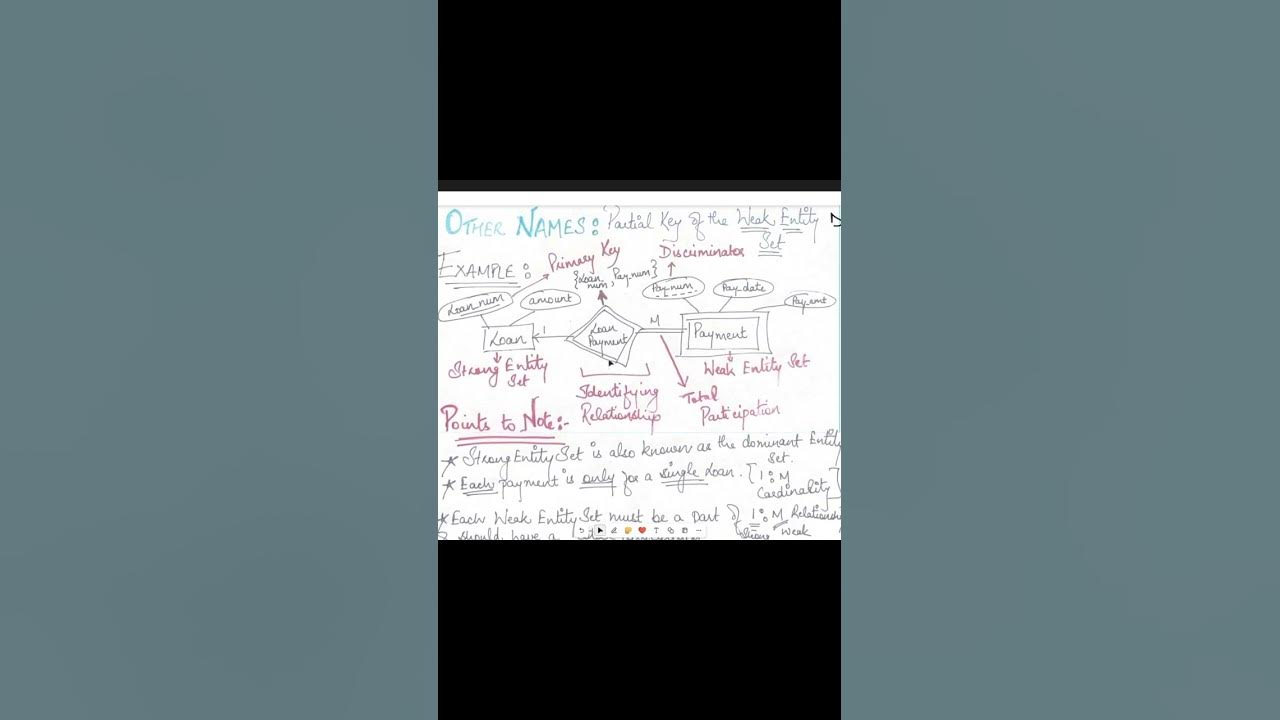 OTHER NAMES: Partial Key of the Weak Entity Set
EXAMPLE:
Primary Key
Discriminator
{Loan_num, Pay_num}
Loan_num
amount
Pay_num
Pay_date
Pay_amt
Loan
1
Loan Payment
M
Payment
Strong Entity Set
Weak Entity Set
Identifying Relationship
Total Participation
Points to Note:-
* Strong Entity Set is also known as the dominant Entity Set.
* Each payment is only for a single Loan. [1:M Cardinality]
* Each Weak Entity Set must be a part of 1:M Relationship
Strong Weak
& should have a